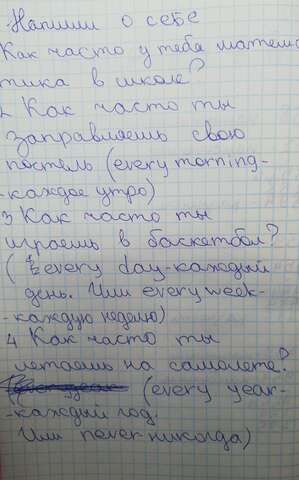 Напиши о себе
Как часто у тебя матема
тика в школе?
2 Как часто ты
заправляешь свою
постель (every morning-
-каждое утро)
3 Как часто ты
играешь в баскетбол?
( every day-каждый
день. Или every week-
-каждую неделю)
4 Как часто ты
летаешь на самолете?
(every year-
-каждый год.
Или never-никогда)